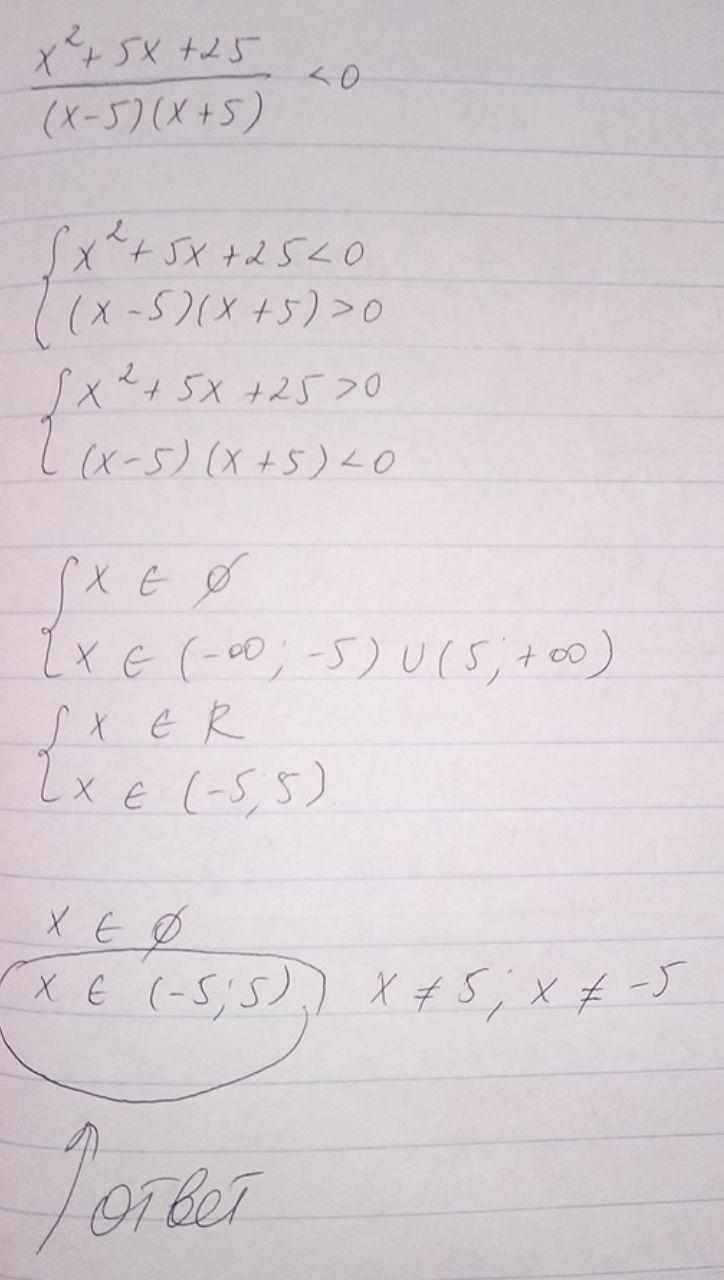 x²+5x+25
(x-5)(x+5) <0
{x²+5x+25<0
(x-5)(x+5)>0
{x²+5x+25>0
(x-5)(x+5)<0
{x ∈ ∅
x ∈ (-∞; -5) ∪ (5; +∞)
{x ∈ R
x ∈ (-5; 5)
x ∈ ∅
x ∈ (-5; 5) x ≠ 5; x ≠ -5
ответ